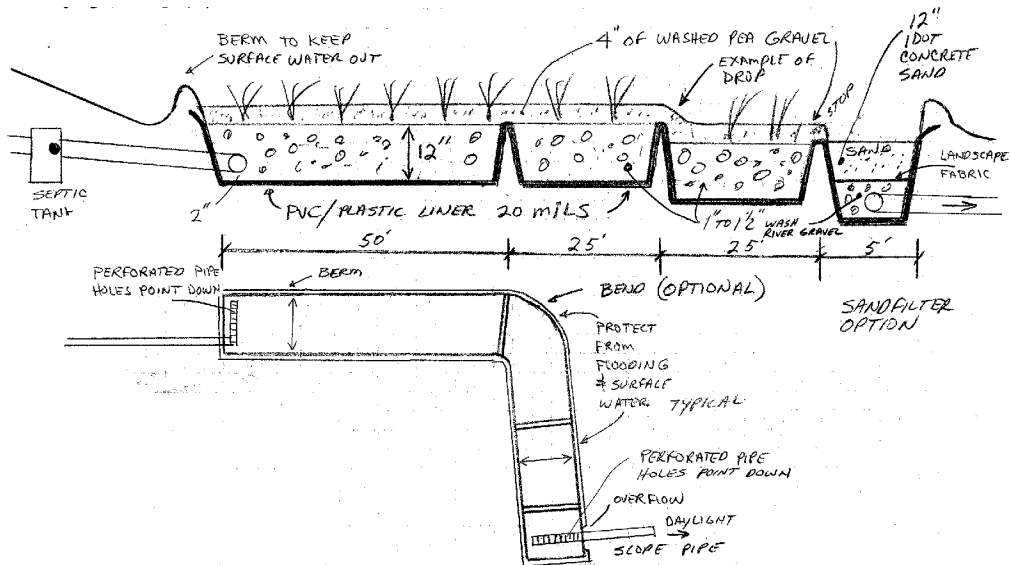 BERM TO KEEP
SURFACE WATER OUT
4" OF WASHED PEA GRAVEL
EXAMPLE OF
DROP
12"
IDOT
CONCRETE
SAND
STOP
12"
SAND
LANDSCAPE
FABRIC
SEPTIC
TANK
2"
PVC/PLASTIC LINER 20 MILS
1" TO 1½" WASH
RIVER GRAVEL
50'
25'
25'
5'
PERFORATED PIPE
HOLES POINT DOWN
BERM
BEND (OPTIONAL)
SANDFILTER
OPTION
PROTECT
FROM
FLOODING
& SURFACE
WATER TYPICAL
PERFORATED PIPE
HOLES POINT DOWN
OVERFLOW
DAYLIGHT
SLOPE PIPE